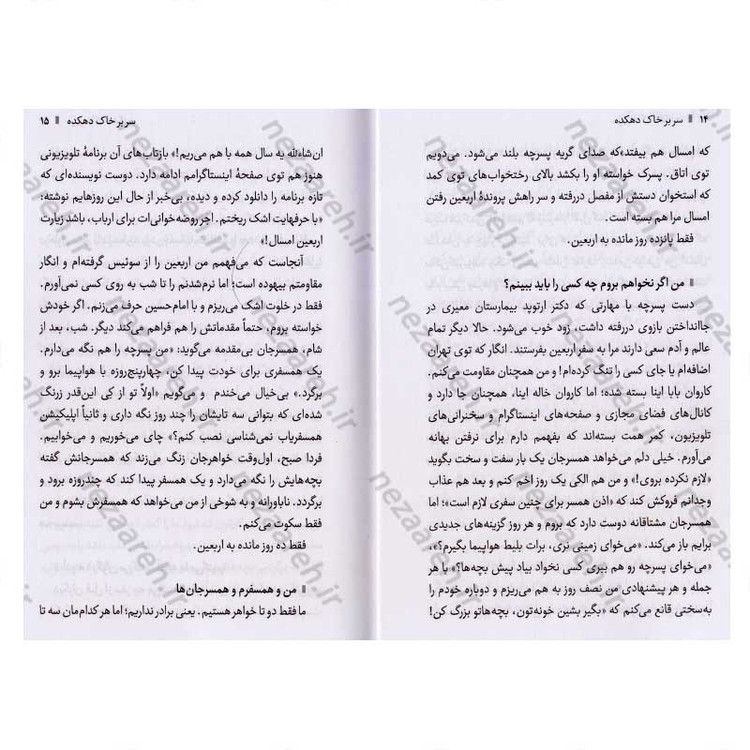 ۱۴ سر بر خاک دهکده
که امسال هم بیفتد» که صدای گریه پسرچه بلند می‌شود. می‌دویم
توی اتاق. پسرک خواسته او را بکشد بالای رختخواب‌های توی کمد
که استخوان دستش از مفصل دررفته و سر راهش پروندهٔ اربعین رفتن
امسال مرا هم بسته است.
فقط پانزده روز مانده به اربعین.
من اگر نخواهم بروم چه کسی را باید ببینم؟
دست پسرچه با مهارتی که دکتر ارتوپد بیمارستان معیری در
جاانداختن بازوی دررفته داشت، زود خوب می‌شود. حالا دیگر تمام
عالم و آدم سعی دارند مرا به سفر اربعین بفرستند. انگار که توی تهران
اضافه‌ام یا جای کسی را تنگ کرده‌ام! و من همچنان مقاومت می‌کنم.
کاروان بابا اینا بسته شده؛ اما کاروان خاله اینا، همچنان جا دارد و
کانال‌های فضای مجازی و صفحه‌های اینستاگرام و سخنرانی‌های
تلویزیون، کمر همت بسته‌اند که بفهمم دارم برای نرفتن بهانه
می‌آورم. خیلی دلم می‌خواهد همسرجان یک بار سفت و سخت بگوید
«لازم نکرده بروی!» و من هم الکی یک روز اخم کنم و بعد هم عذاب
وجدانم فروکش کند که «اذن همسر برای چنین سفری لازم است»؛ اما
همسرجان مشتاقانه دوست دارد که بروم و هر روز گزینه‌های جدیدی
برایم باز می‌کند. «می‌خوای زمینی نری، برات بلیط هواپیما بگیرم؟»،
«می‌خوای پسرچه رو هم ببری کسی نخواد بیاد پیش بچه‌ها؟» با هر
جمله و هر پیشنهادی من نصف روز به هم می‌ریزم و دوباره خودم را
به‌سختی قانع می‌کنم که «بگیر بشین خونه‌تون، بچه‌هاتو بزرگ کن!
سر بر خاک دهکده ۱۵
ان‌شاءالله یه سال همه با هم می‌ریم!» بازتاب‌های آن برنامهٔ تلویزیونی
هنوز هم توی صفحهٔ اینستاگرامم ادامه دارد. دوست نویسنده‌ای که
تازه برنامه را دانلود کرده و دیده، بی‌خبر از حال این روزهایم نوشته:
«با حرفهایت اشک ریختم. اجر روضه‌خوانی‌ات برای ارباب، باشد زیارت
اربعین امسال!»
آنجاست که می‌فهمم من اربعین را از سوئیس گرفته‌ام و انگار
مقاومتم بیهوده است؛ اما نرم‌شدنم را تا شب به روی کسی نمی‌آورم.
فقط در خلوت اشک می‌ریزم و با امام حسین حرف می‌زنم. اگر خودش
خواسته بروم، حتماً مقدماتش را هم فراهم می‌کند دیگر. شب، بعد از
شام، همسرجان بی‌مقدمه می‌گوید: «من پسرچه را هم نگه می‌دارم.
یک همسفری برای خودت پیدا کن، چهارپنج‌روزه با هواپیما برو و
برگرد.» بی‌خیال می‌خندم و می‌گویم «اولاً تو از کی این‌قدر زرنگ
شده‌ای که بتوانی سه تایشان را چند روز نگه داری و ثانیاً اپلیکیشن
همسفریاب نمی‌شناسی نصب کنم؟» چای می‌خوریم و می‌خوابیم.
فردا صبح، اول‌وقت خواهرجان زنگ می‌زند که همسرجانش گفته
بچه‌هایش را نگه می‌دارد و یک همسفر پیدا کند که چندروزه برود و
برگردد. ناباورانه و به شوخی از من می‌خواهد که همسفرش بشوم و من
فقط سکوت می‌کنم.
فقط ده روز مانده به اربعین.
من و همسفرم و همسرجان‌ها
ما فقط دو تا خواهر هستیم. یعنی برادر نداریم؛ اما هر کدام‌مان سه تا
nezaareh.ir